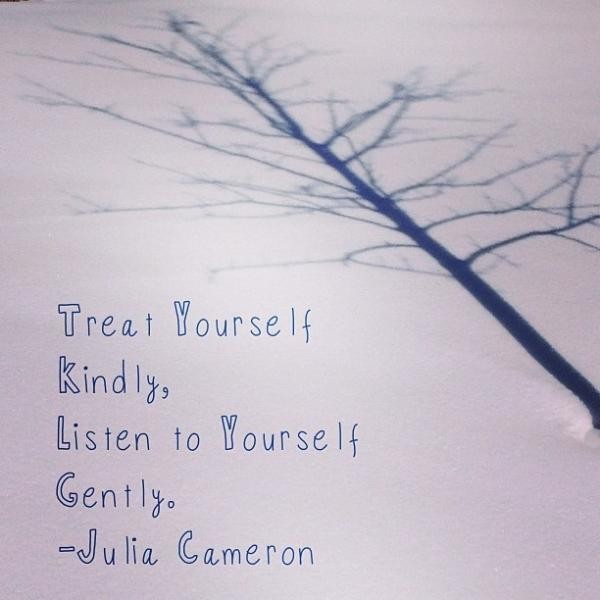 Treat Yourself
Kindly,
Listen to Yourself
Gently.
-Julia Cameron